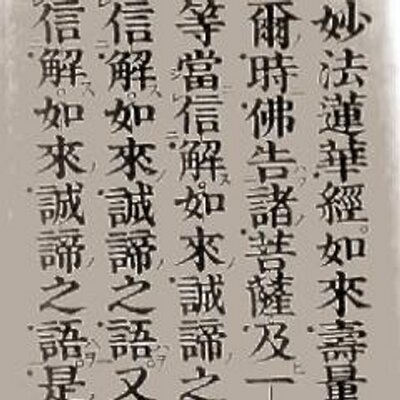 妙法蓮華經如來壽量
爾時佛告諸菩薩及一
等當信解如來誠諦之
信解如來誠諦之語又
信解如來誠諦之語是